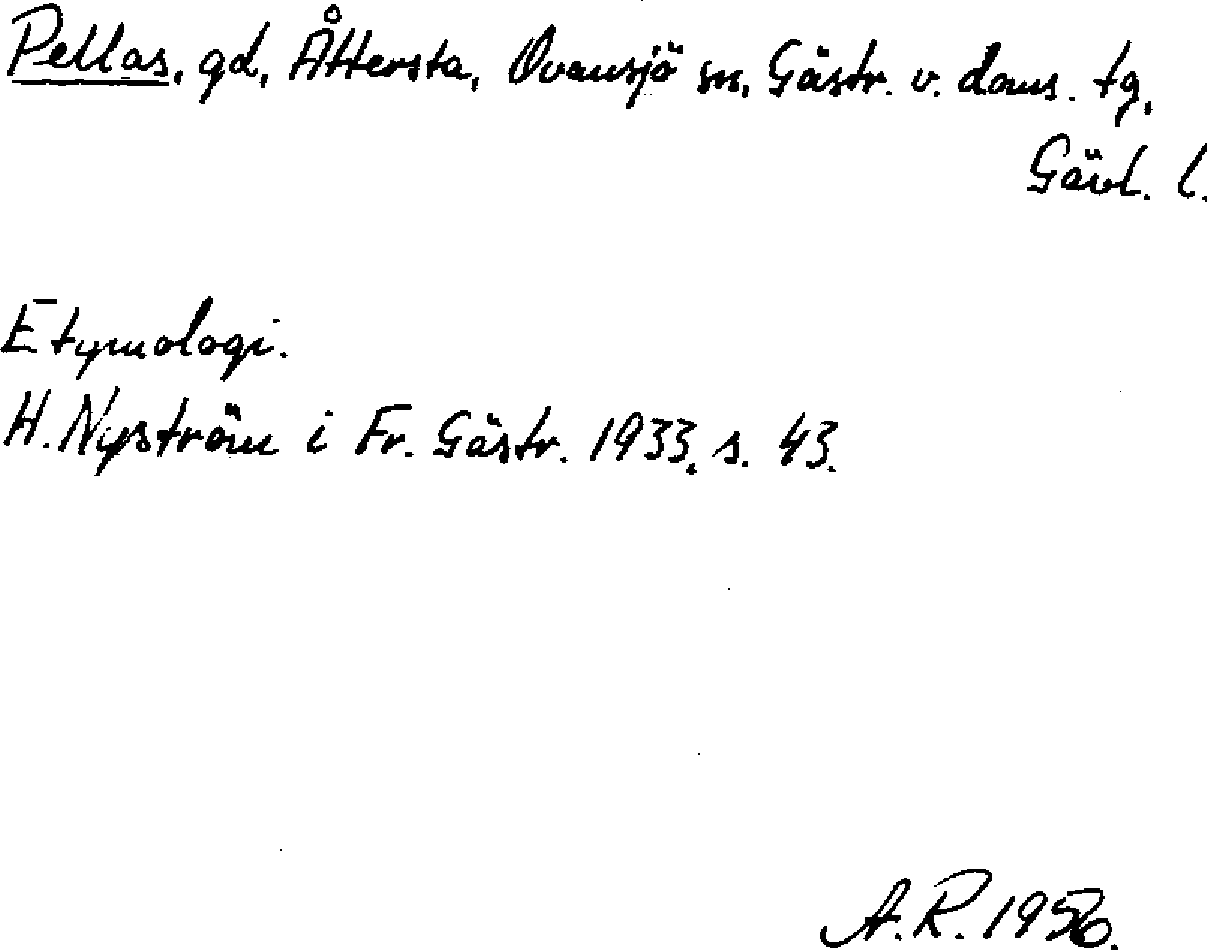 Pellas, gd, Åttersta, Ovansjö sn, Gästr. v. doms. tg,
Gävl. l.
Etymologi.
H. Nyström i Fr. Gästr. 1933, s. 43.
A.R. 1956.